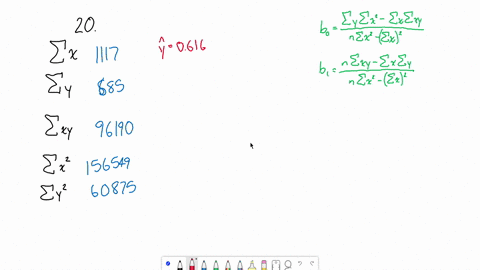 20.
∑x 1117
ŷ = 0.616
∑y 685
∑xy 96190
∑x² 156549
∑y² 60875
b₀ = (∑y∑x² - ∑x∑xy) / (n∑x² - (∑x)²)
b₁ = (n∑xy - ∑x∑y) / (n∑x² - (∑x)²)